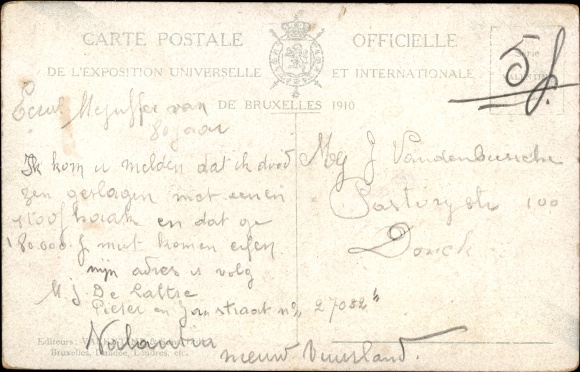 CARTE POSTALE OFFICIELLE
DE L'EXPOSITION UNIVERSELLE ET INTERNATIONALE
DE BRUXELLES 1910
5 f.
Mejuffer van
80 jaar
Ik kom u melden dat ik dood
zen geslagen met eenen
en dat ge
180.000 f mut komen
mijn adres is volg
M. J. De
Pieter en Jan straat no, 27082
nieuw
Mej J Vandenbussche
Pastorystr 100
Donck
Editeurs:
Bruxelles, Londres, etc.